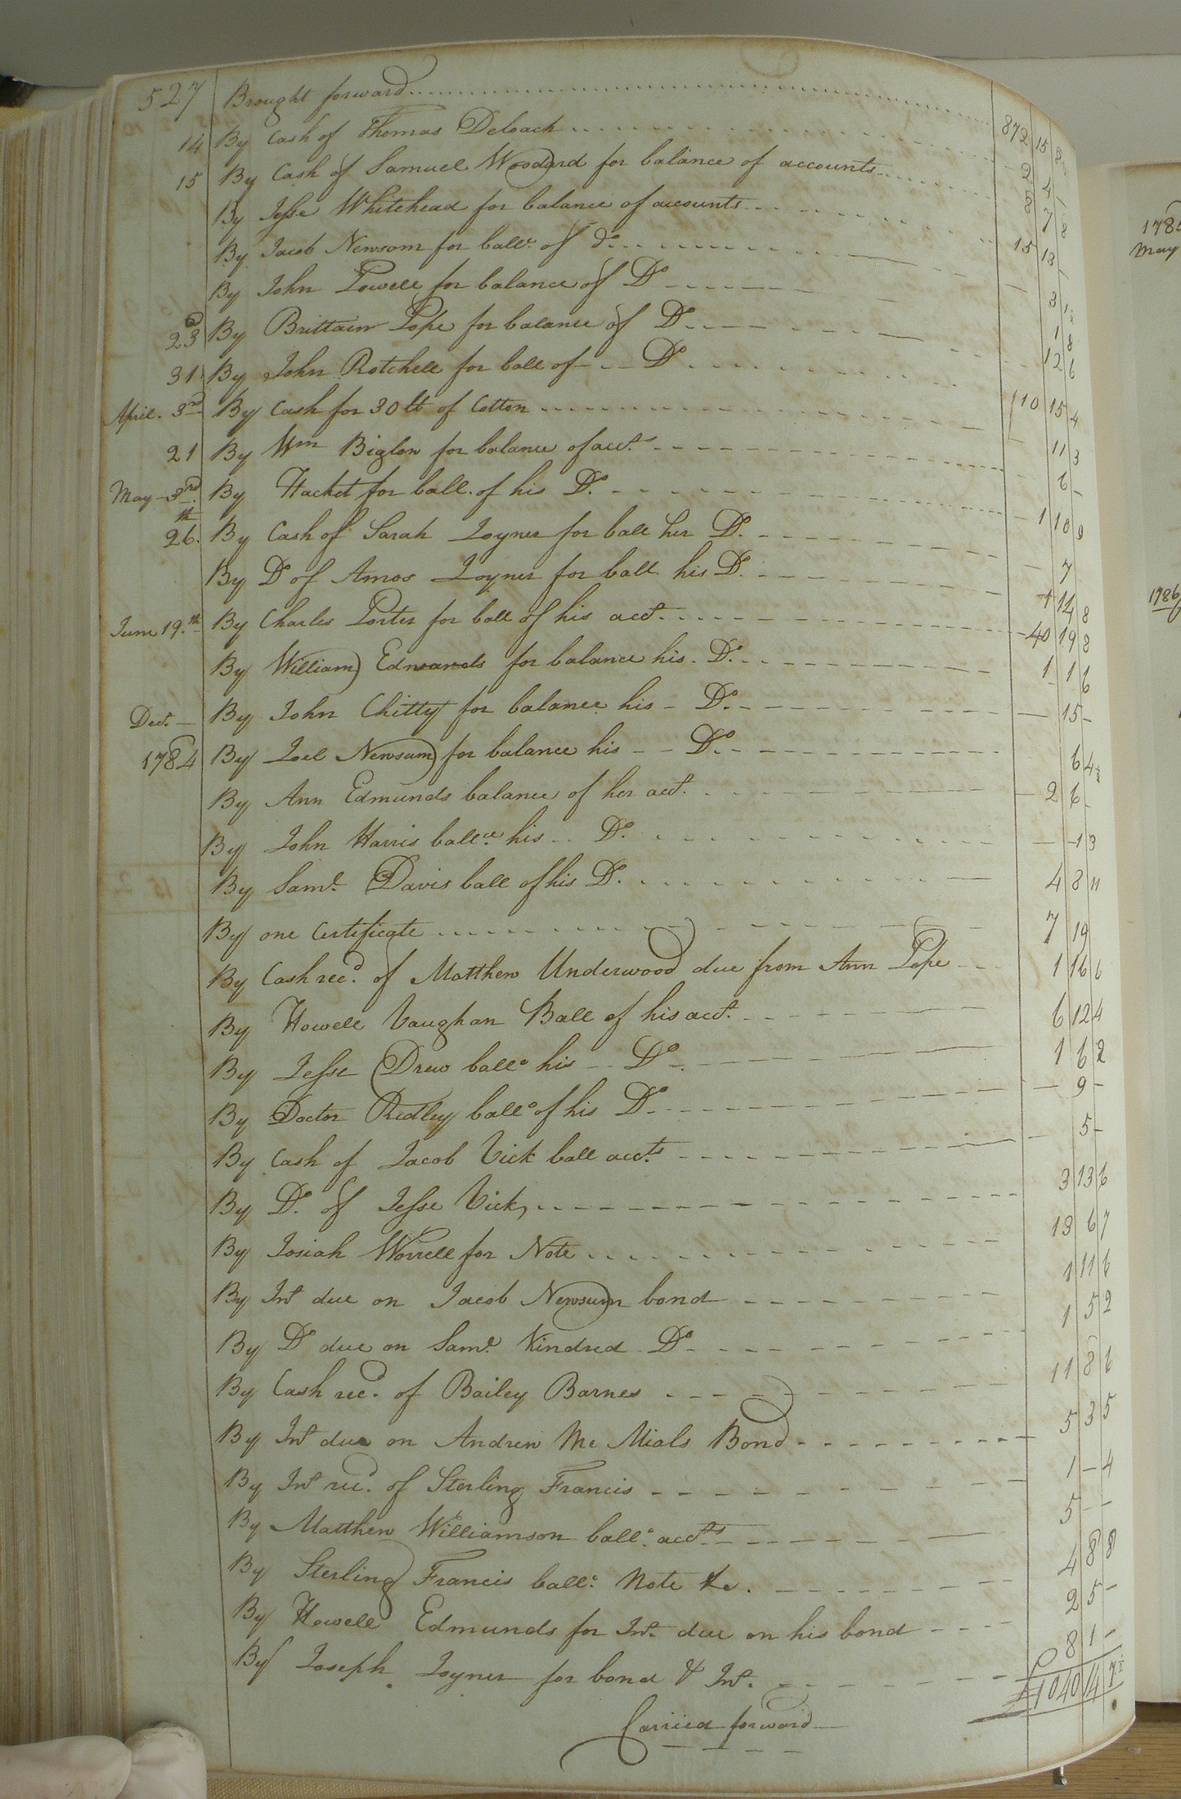 527 Brought forward 872 15 8
14 By Cash of Thomas Deloach 2 4 1
15 By Cash of Samuel Woodard for balance of accounts 8 7 8
By Jesse Whitehead for balance of accounts 15 13 -
By Jacob Newsom for ball.ce of do
By John Powell for balance of Do 3
23d By Brittain Pope for balance of Do 1 8
31 By John Rotchell for ball of Do 12 6
April 3rd By Cash for 30 lb of Cotton 110 15 4
21 By Wm Biglon for balance of acct 11 3
May 3rd By Hacket for ball. of his Do 6 -
26th By Cash of Sarah Joyner for ball her Do 1 10 9
By Do of Amos Joyner for ball his Do 7
June 19th By Charles Porter for ball of his acct 1 14 8
40 19 8
By William Edmunds for balance his Do 1 1 6
Dec. By John Chitty for balance his Do 15 -
1784 By Joel Newsum for balance his Do 6 4½
By Ann Edmunds balance of her acct. 2 6 -
By John Harris ball.ce his Do 1 3
By Saml Davis ball of his Do 4 8 11
By one Certificate 7 19
By Cash recd. of Matthew Underwood due from Ann Pope 1 16 6
By Howell Vaughan Ball of his acct. 6 12 4
By Jesse Drew ballo his Do 1 6 2
By Doctor Ridley ballo of his Do 9 -
By Cash of Jacob Vick ball accts 5 -
By Do. of Jesse Vick 3 13 6
By Josiah Worrell for Note 13 6 7
By Int due on Jacob Newsum bond 1 11 6
By Do due on Saml Kindred Do 1 5 2
By Cash recd. of Bailey Barnes 11 8 6
By Int due on Andrew Mc Mials Bond 5 3 5
By Int recd. of Sterling Francis 1 - 4
By Matthew Williamson ballo. accts 5 - -
By Sterling Francis ballo. Note &c. 4 8 8
By Howell Edmunds for Int. due on his bond 2 5 -
By Joseph Joyner for bond & Int. 8 1 -
£1040 14 7½
Carried forward
May
1786